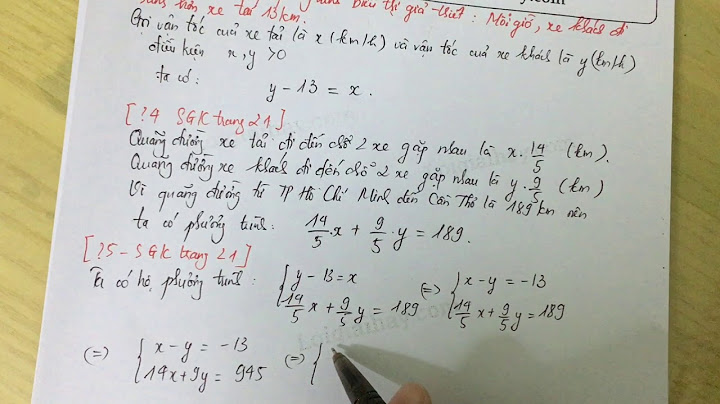 y.com
hơn xe tải 13km. biểu thị giả thiết: Mỗi giờ, xe khách đi
Gọi vận tốc của xe tải là x (km/h) và vận tốc của xe khách là y (km/h)
điều kiện x, y > 0
ta có: y - 13 = x.
[?4 SGK trang 21]
Quãng đường xe tải đi đến chỗ 2 xe gặp nhau là x. 14/5 (km).
Quãng đường xe khách đi đến chỗ 2 xe gặp nhau là y. 9/5 (km)
Vì quãng đường từ TP Hồ Chí Minh đến Cần Thơ là 189 km nên
ta có phương trình: 14/5 .x + 9/5 .y = 189.
[?5 - SGK trang 21]
Ta có hệ phương trình: { y - 13 = x (=) { x - y = -13
14/5 x + 9/5 y = 189 14/5 x + 9/5 y = 189
(=) { x - y = -13 (=) {
14x + 9y = 945